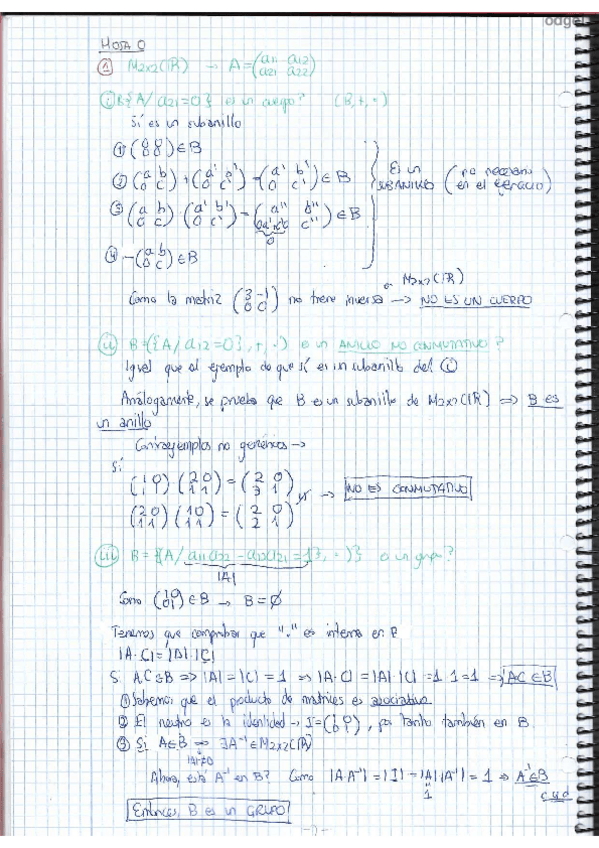 HOJA 0
① M2x2(ℝ) → A = (a11 a12
a21 a22)
i) B{A/a21=0} es un cuerpo? (B,+,·)
Sí es un subanillo
① (0 0
0 0) ∈ B
② (a b
0 c) + (a' b'
0 c') = (a' b'
0 c') ∈ B
Es un SUBANILLO (no necesario en el ejercicio)
③ (a b
0 c) · (a' b'
0 c') = (a'' b''
c'') ∈ B
0
④ -(a b
0 c) ∈ B
en M2x2(ℝ)
Como la matriz (3 -1
0 0) no tiene inversa → NO ES UN CUERPO
ii) B=({A/a12=0}, +, ·) es un ANILLO NO CONMUTATIVO?
Igual que el ejemplo de que sí es un subanillo del ①
Análogamente, se prueba que B es un subanillo de M2x2(ℝ) ⇒ B es
un anillo
Contraejemplos no genéricos →
Sí
(1 0
1 1) (2 0
1 1) = (2 0
3 1)
→ NO ES CONMUTATIVO
(2 0
1 1) (1 0
1 1) = (2 0
2 1)
iii) B = {A/a11a22 - a12a21 = 1}, ·)} es un grupo?
|A|
Como (1 0
0 1) ∈ B → B = ∅
Tenemos que comprobar que "·" es interna en B
|A·C| = |A|·|C|
Si A,C ∈ B ⇒ |A| = |C| = 1 ⇒ |A·C| = |A|·|C| = 1·1 = 1 ⇒ AC ∈ B
① Sabemos que el producto de matrices es asociativo
② El neutro es la identidad → I = (1 0
0 1), por tanto también en B
③ Si A∈B ⇒ ∃A⁻¹ ∈ M2x2(ℝ)
|A|≠0
Ahora, está A⁻¹ en B? Como |A·A⁻¹| = |I| = |A||A⁻¹| = 1 ⇒ A⁻¹∈B
1
c.q.d
Entonces, B es un GRUPO